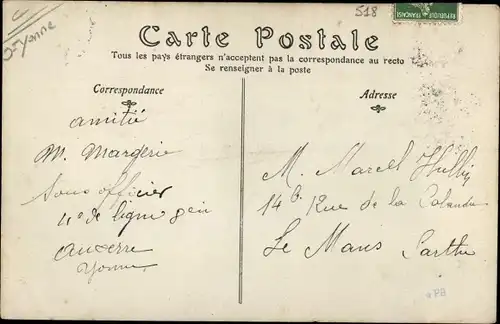 Yonne
518
REPUBLIQUE FRANÇAISE
Carte Postale
Tous les pays étrangers n'acceptent pas la correspondance au recto
Se renseigner à la poste
Correspondance
Adresse
amitié
M. Margerie
Sous officier
4e de ligne
Auxerre
Yonne
M. Marcel
14 b Rue de la
Le Mans Sarthe
PB